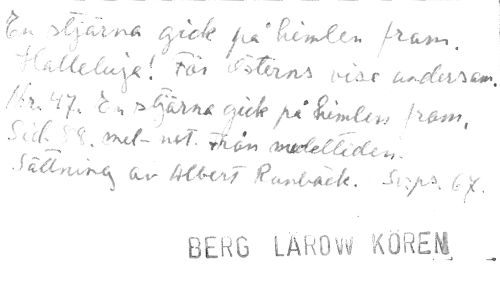 En stjärna gick på himlen fram.
Halleluja! För Österns vise andersam.
Nr. 47. En stjärna gick på himlen fram,
Sid. 58. mel-not. från medeltiden.
Sättning av Albert Runbäck.  67.
BERG LÄROV KÖREN